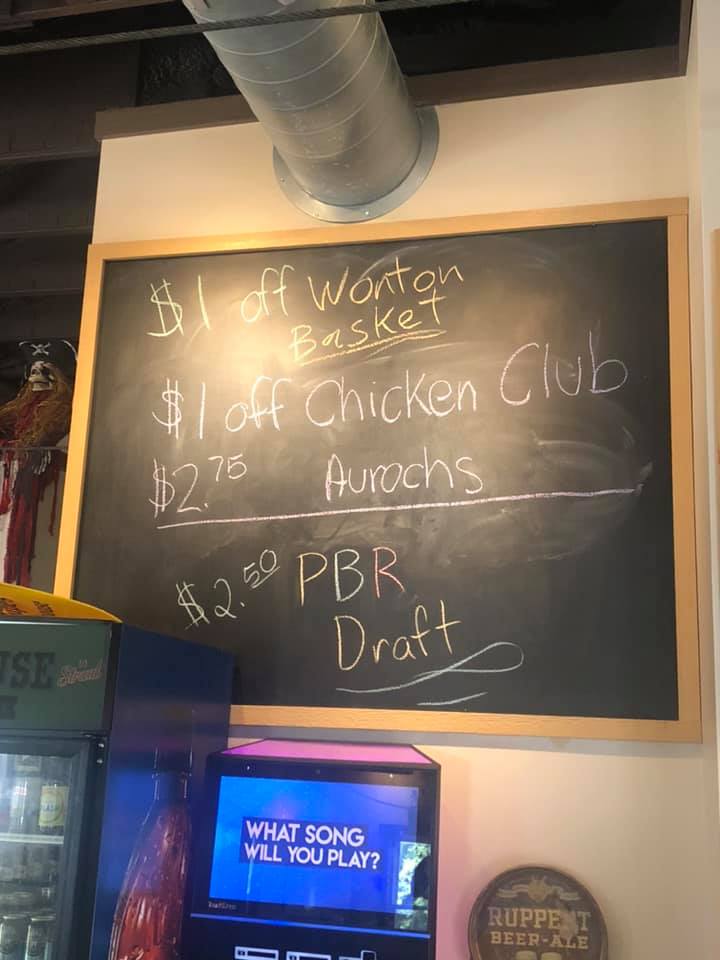 $1 off Wonton
Basket
$1 off Chicken Club
$2.75 Aurochs
$2.50 PBR
Draft
USE
WHAT SONG
WILL YOU PLAY?
RUPPERT
BEER-ALE